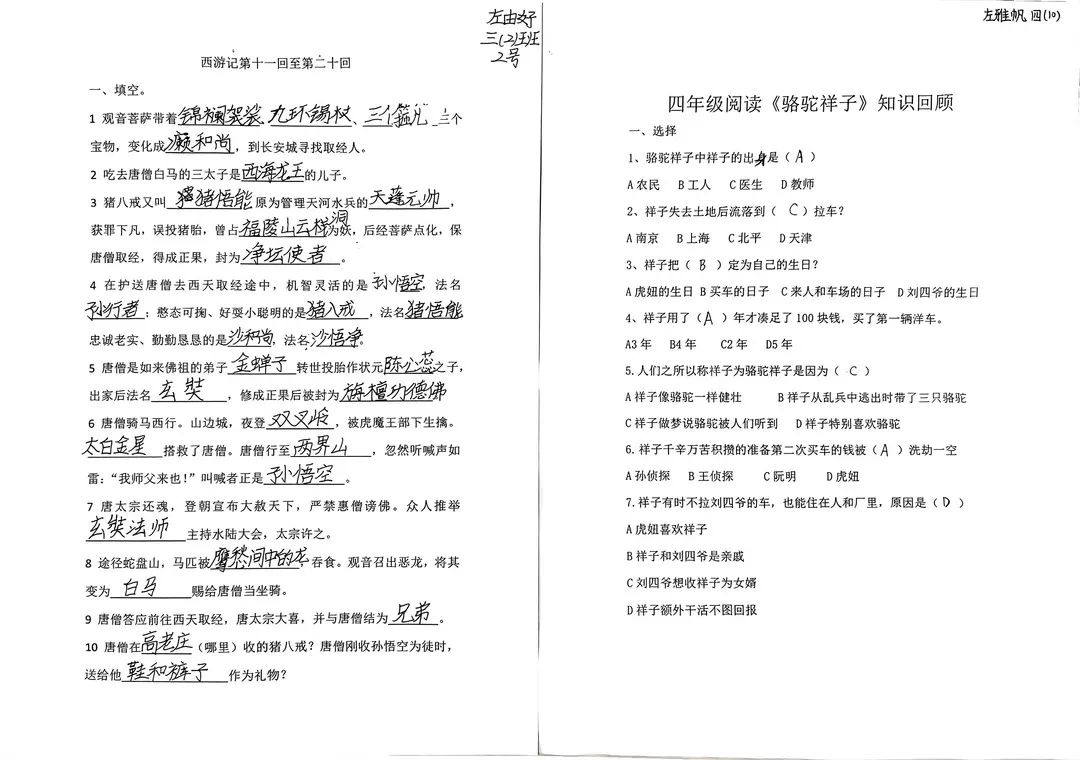 左由好
三(2)班
2号
西游记第十一回至第二十回
一、填空。
1 观音菩萨带着锦襕袈裟、九环锡杖、三个箍儿 三个
宝物，变化成濑和尚，到长安城寻找取经人。
2 吃去唐僧白马的三太子是西海龙王的儿子。
3 猪八戒又叫 猪悟能 原为管理天河水兵的天蓬元帅，
获罪下凡，误投猪胎，曾占福陵山云栈洞为妖，后经菩萨点化，保
唐僧取经，得成正果，封为净坛使者。
4 在护送唐僧去西天取经途中，机智灵活的是 孙悟空，法名
孙行者；憨态可掬、好耍小聪明的是猪八戒，法名猪悟能
忠诚老实、勤勤恳恳的是沙和尚，法名沙悟净。
5 唐僧是如来佛祖的弟子 金蝉子 转世投胎作状元陈心蕊之子，
出家后法名 玄奘，修成正果后被封为旃檀功德佛
6 唐僧骑马西行。山边城，夜登双叉岭，被虎魔王部下生擒。
太白金星 搭救了唐僧。唐僧行至两界山，忽然听喊声如
雷：“我师父来也！”叫喊者正是 孙悟空。
7 唐太宗还魂，登朝宣布大赦天下，严禁惠僧谤佛。众人推举
玄奘法师 主持水陆大会，太宗许之。
8 途径蛇盘山，马匹被鹰愁间中的龙吞食。观音召出恶龙，将其
变为 白马 赐给唐僧当坐骑。
9 唐僧答应前往西天取经，唐太宗大喜，并与唐僧结为 兄弟。
10 唐僧在高老庄（哪里）收的猪八戒？唐僧刚收孙悟空为徒时，
送给他 鞋和裤子 作为礼物？
左雅帆 四(10)
四年级阅读《骆驼祥子》知识回顾
一、选择
1、骆驼祥子中祥子的出身是（ A ）
A 农民 B 工人 C 医生 D 教师
2、祥子失去土地后流落到（ C ）拉车？
A 南京 B 上海 C 北平 D 天津
3、祥子把（ B ）定为自己的生日？
A 虎妞的生日 B 买车的日子 C 来人和车场的日子 D 刘四爷的生日
4、祥子用了（A ）年才凑足了 100 块钱，买了第一辆洋车。
A3 年 B4 年 C2 年 D5 年
5.人们之所以称祥子为骆驼祥子是因为（ C ）
A 祥子像骆驼一样健壮 B 祥子从乱兵中逃出时带了三只骆驼
C 祥子做梦说骆驼被人们听到 D 祥子特别喜欢骆驼
6.祥子千辛万苦积攒的准备第二次买车的钱被（A ）洗劫一空
A 孙侦探 B 王侦探 C 阮明 D 虎妞
7.祥子有时不拉刘四爷的车，也能住在人和厂里，原因是（ D ）
A 虎妞喜欢祥子
B 祥子和刘四爷是亲戚
C 刘四爷想收祥子为女婿
D 祥子额外干活不图回报